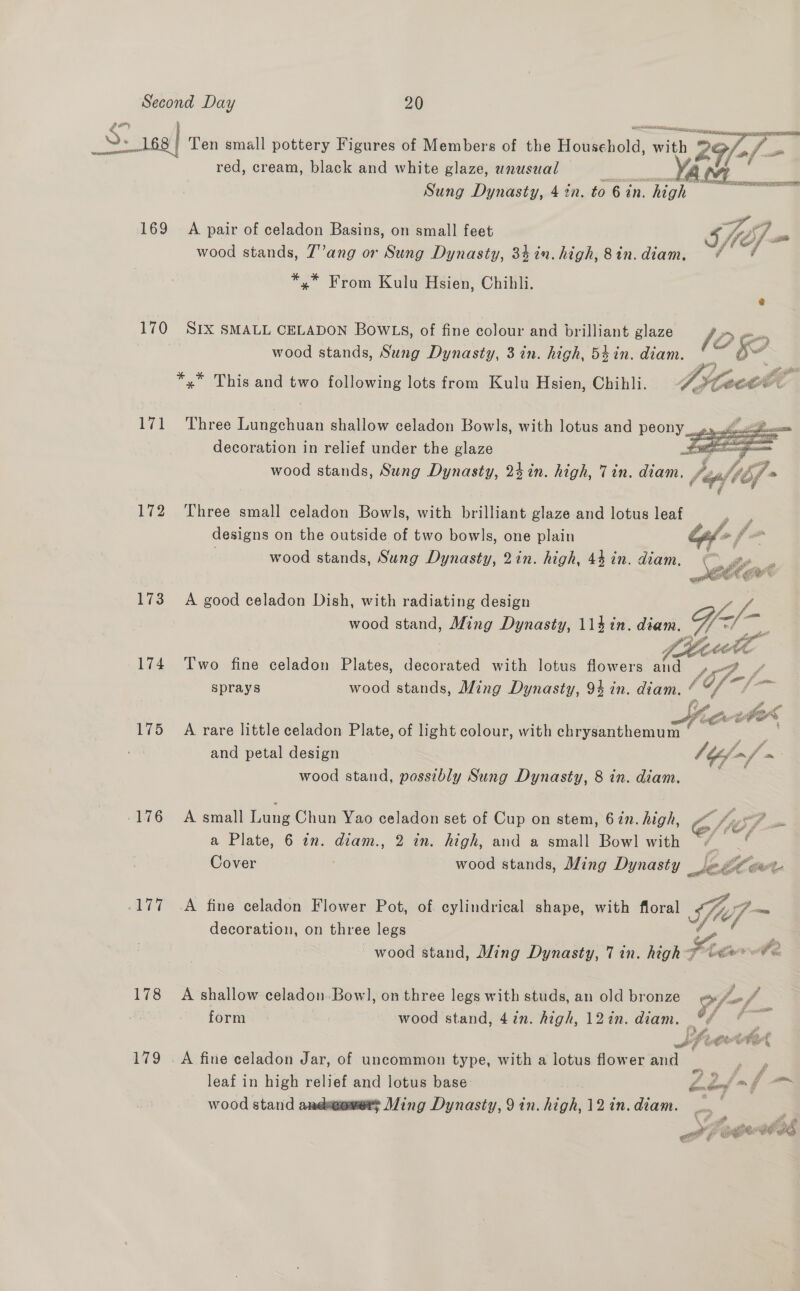 Second Day 20
S. 168 Ten small pottery Figures of Members of the Household, with 29/-/-
red, cream, black and white glaze, unusual
Sung Dynasty, 4 in. to 6 in. high
169 A pair of celadon Basins, on small feet
wood stands, T'ang or Sung Dynasty, 3½ in. high, 8 in. diam.
*⁎* From Kulu Hsien, Chihli.
170 SIX SMALL CELADON BOWLS, of fine colour and brilliant glaze
wood stands, Sung Dynasty, 3 in. high, 5½ in. diam.
*⁎* This and two following lots from Kulu Hsien, Chihli.
171 Three Lungchuan shallow celadon Bowls, with lotus and peony
decoration in relief under the glaze
wood stands, Sung Dynasty, 2½ in. high, 7 in. diam.
172 Three small celadon Bowls, with brilliant glaze and lotus leaf
designs on the outside of two bowls, one plain
wood stands, Sung Dynasty, 2 in. high, 4½ in. diam.
173 A good celadon Dish, with radiating design
wood stand, Ming Dynasty, 11½ in. diam.
174 Two fine celadon Plates, decorated with lotus flowers and
sprays wood stands, Ming Dynasty, 9½ in. diam.
175 A rare little celadon Plate, of light colour, with chrysanthemum
and petal design
wood stand, possibly Sung Dynasty, 8 in. diam.
176 A small Lung Chun Yao celadon set of Cup on stem, 6 in. high,
a Plate, 6 in. diam., 2 in. high, and a small Bowl with
Cover wood stands, Ming Dynasty
177 A fine celadon Flower Pot, of cylindrical shape, with floral
decoration, on three legs
wood stand, Ming Dynasty, 7 in. high
178 A shallow celadon Bowl, on three legs with studs, an old bronze
form wood stand, 4 in. high, 12 in. diam.
179 A fine celadon Jar, of uncommon type, with a lotus flower and
leaf in high relief and lotus base 22/-/-
wood stand and cover; Ming Dynasty, 9 in. high, 12 in. diam.